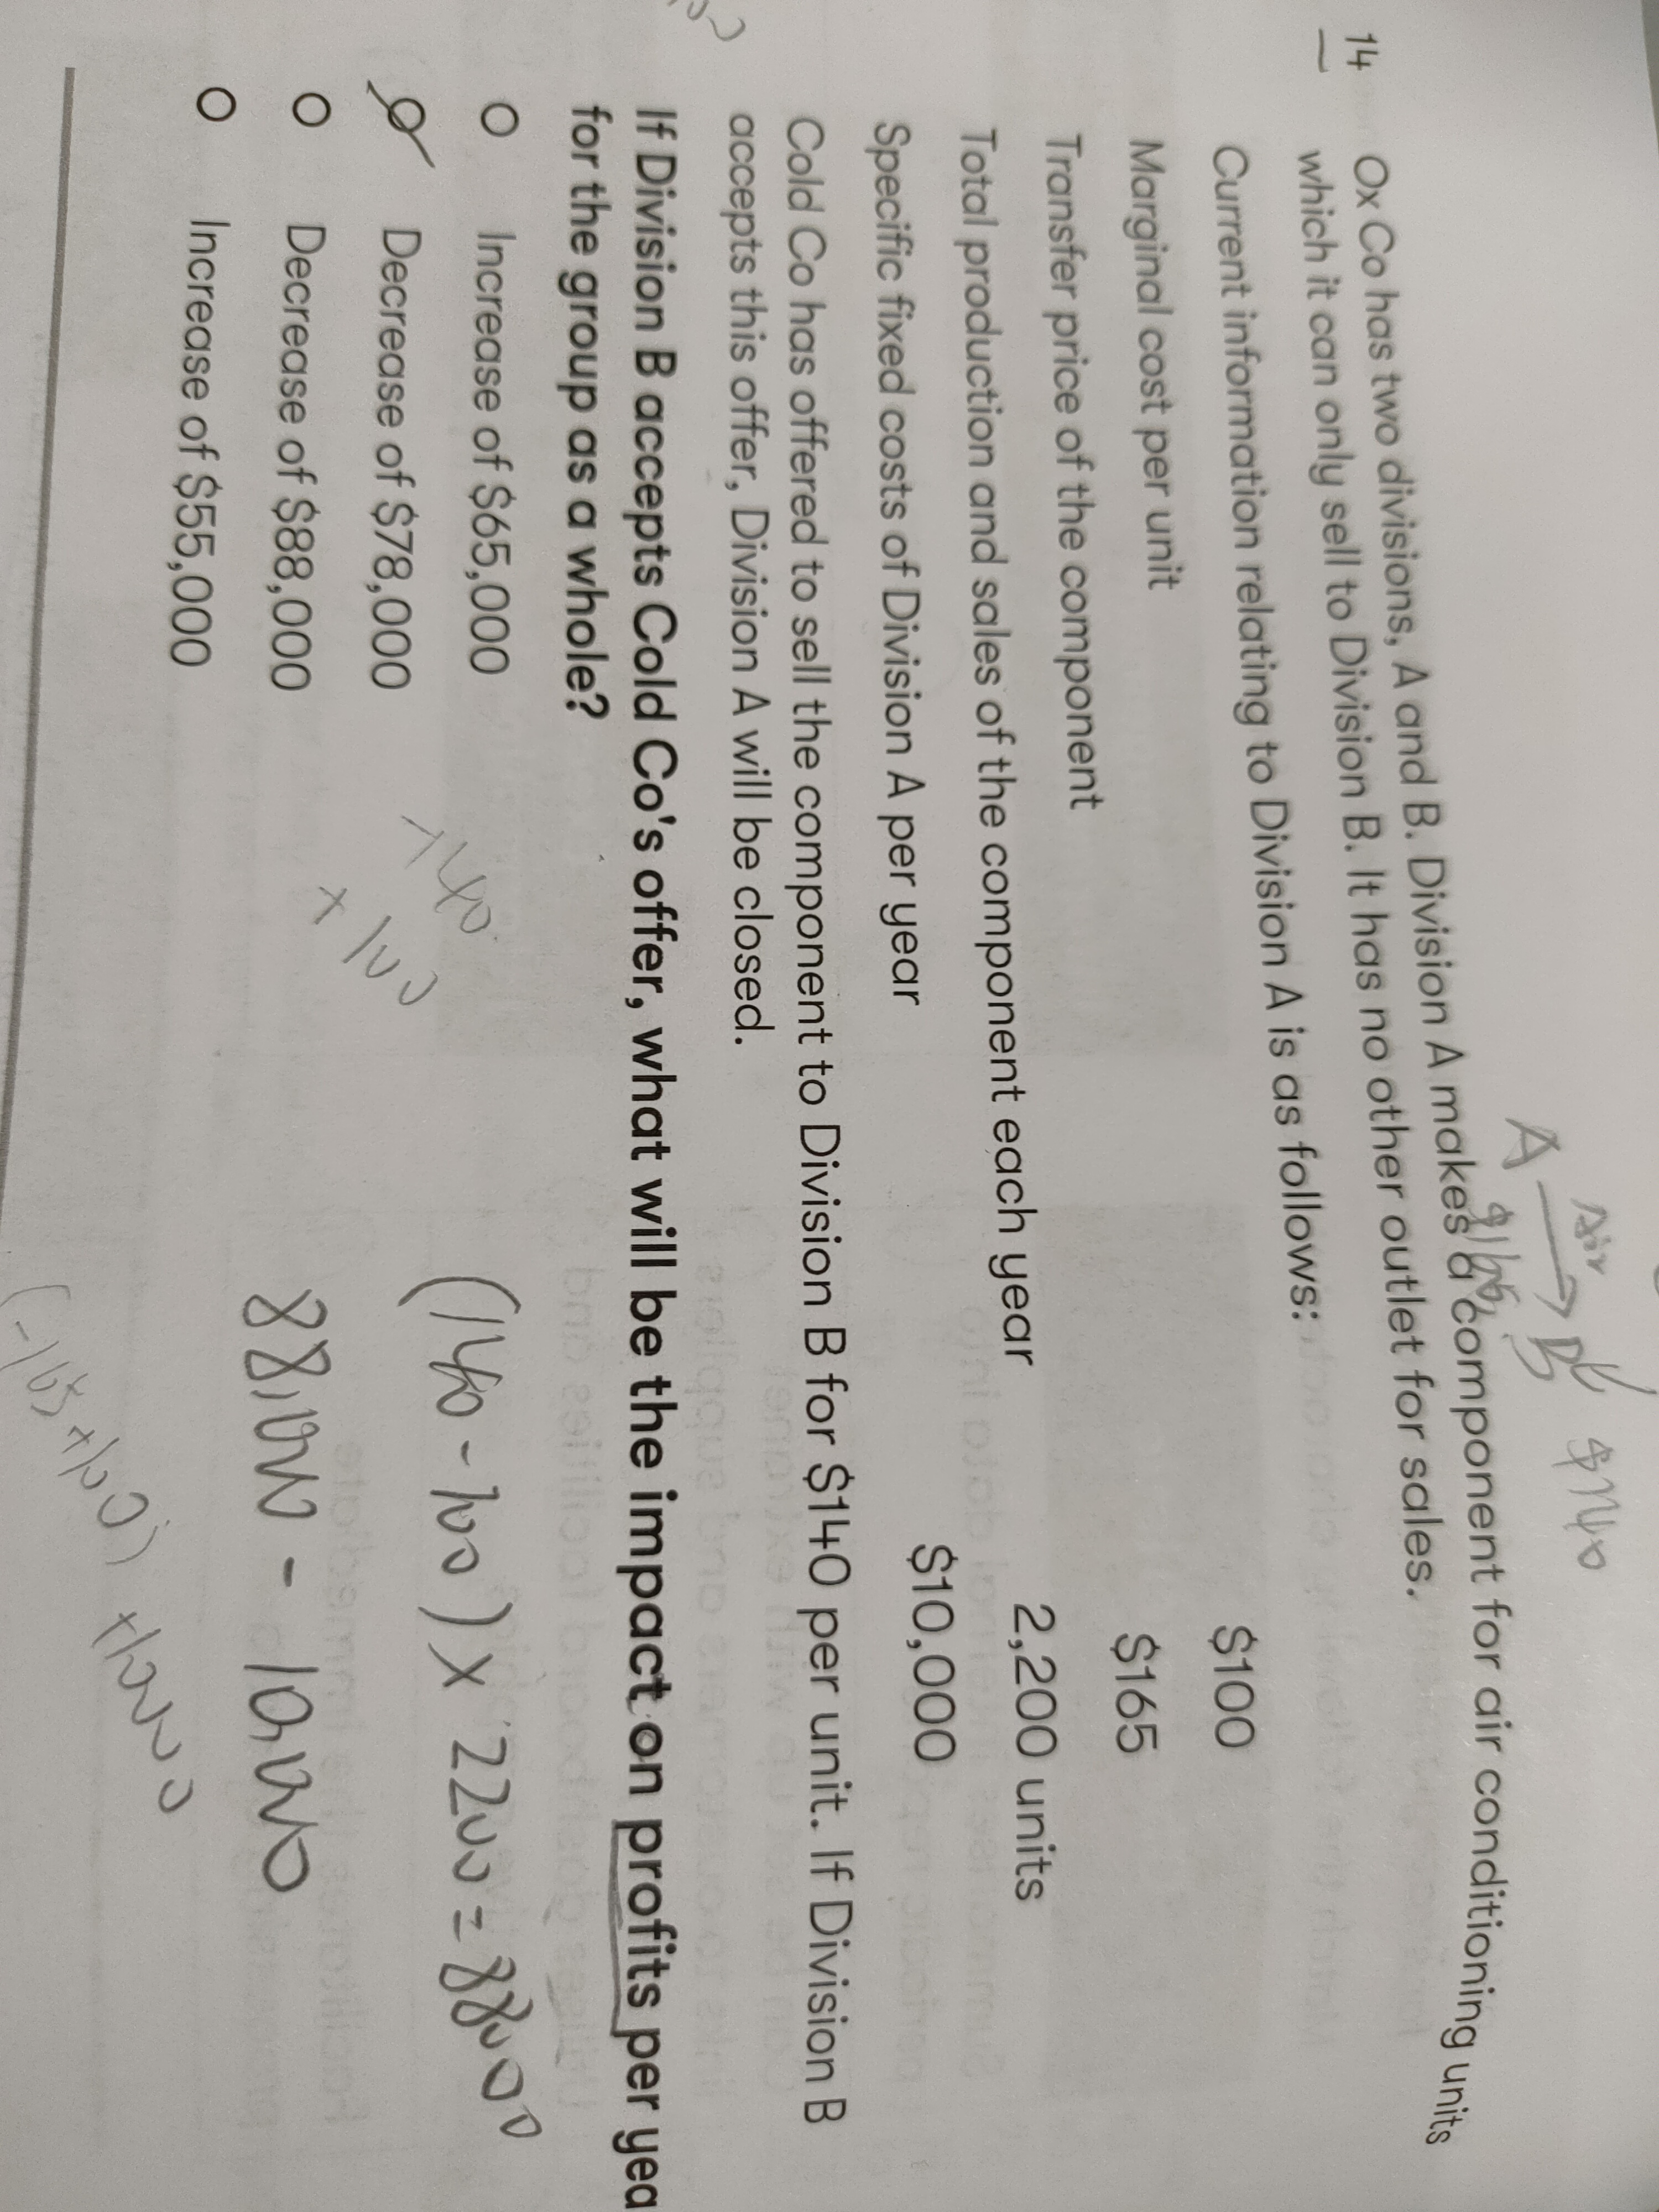 14 Ox Co has two divisions, A and B. Division A makes a component for air conditioning units
which it can only sell to Division B. It has no other outlet for sales.
Current information relating to Division A is as follows:
Marginal cost per unit $100
Transfer price of the component $165
Total production and sales of the component each year 2,200 units
Specific fixed costs of Division A per year $10,000
Cold Co has offered to sell the component to Division B for $140 per unit. If Division B
accepts this offer, Division A will be closed.
If Division B accepts Cold Co's offer, what will be the impact on profits per yea
for the group as a whole?
Increase of $65,000
Decrease of $78,000
Decrease of $88,000
Increase of $55,000
A → B $140
$165
-140
+100
(140-100) x 2200 = 88000
88,000 - 10,000
(-165+100) +10000